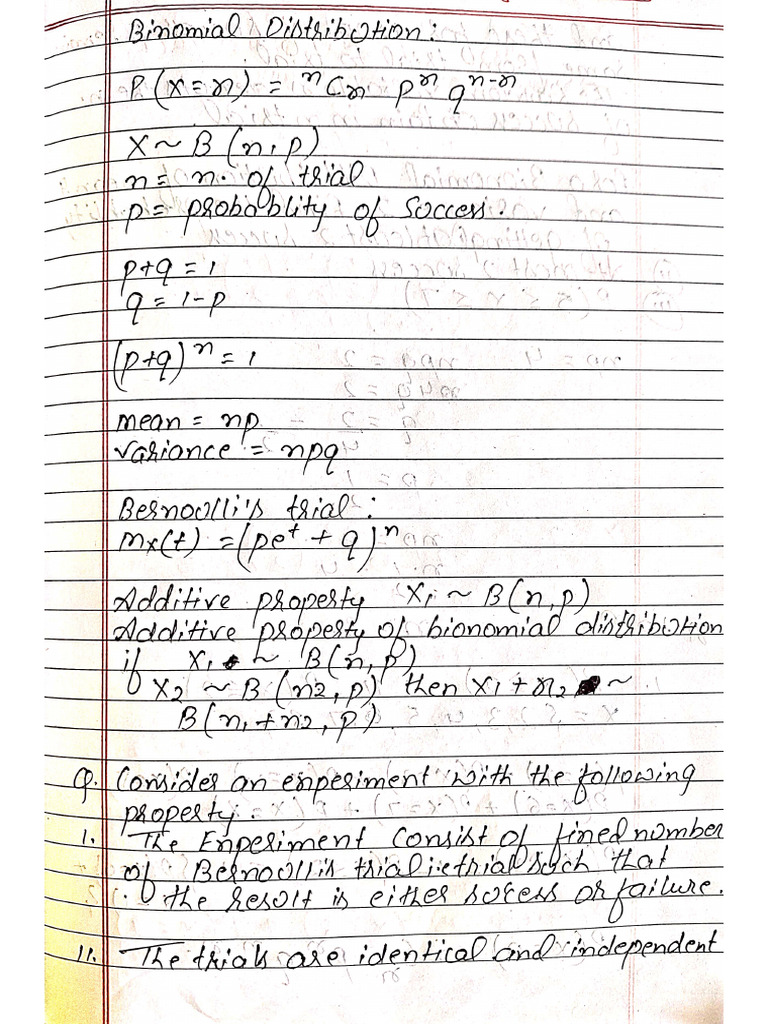 Binomial Distribution:
P(X=x) = ⁿCx pˣ qⁿ⁻ˣ
X ~ B (n, p)
n = n. of trial
p = probablity of success.
p+q = 1
q = 1-p
(p+q)ⁿ = 1
mean = np
variance = npq
Bernoulli's trial:
Mx(t) = (peᵗ + q)ⁿ
Additive property X₁ ~ B(n,p)
Additive property of bionomial distribution
if X₁ ~ B(n,p)
X₂ ~ B (n₂, p) then X₁ + X₂ ~
B(n₁ + n₂, p).
Q. Consider an experiment with the following
property.
1. The Experiment Consist of fixed number
of Bernoulli's trial i.e trial such that
the result is either sucess or failure.
11. The trials are identical and independent